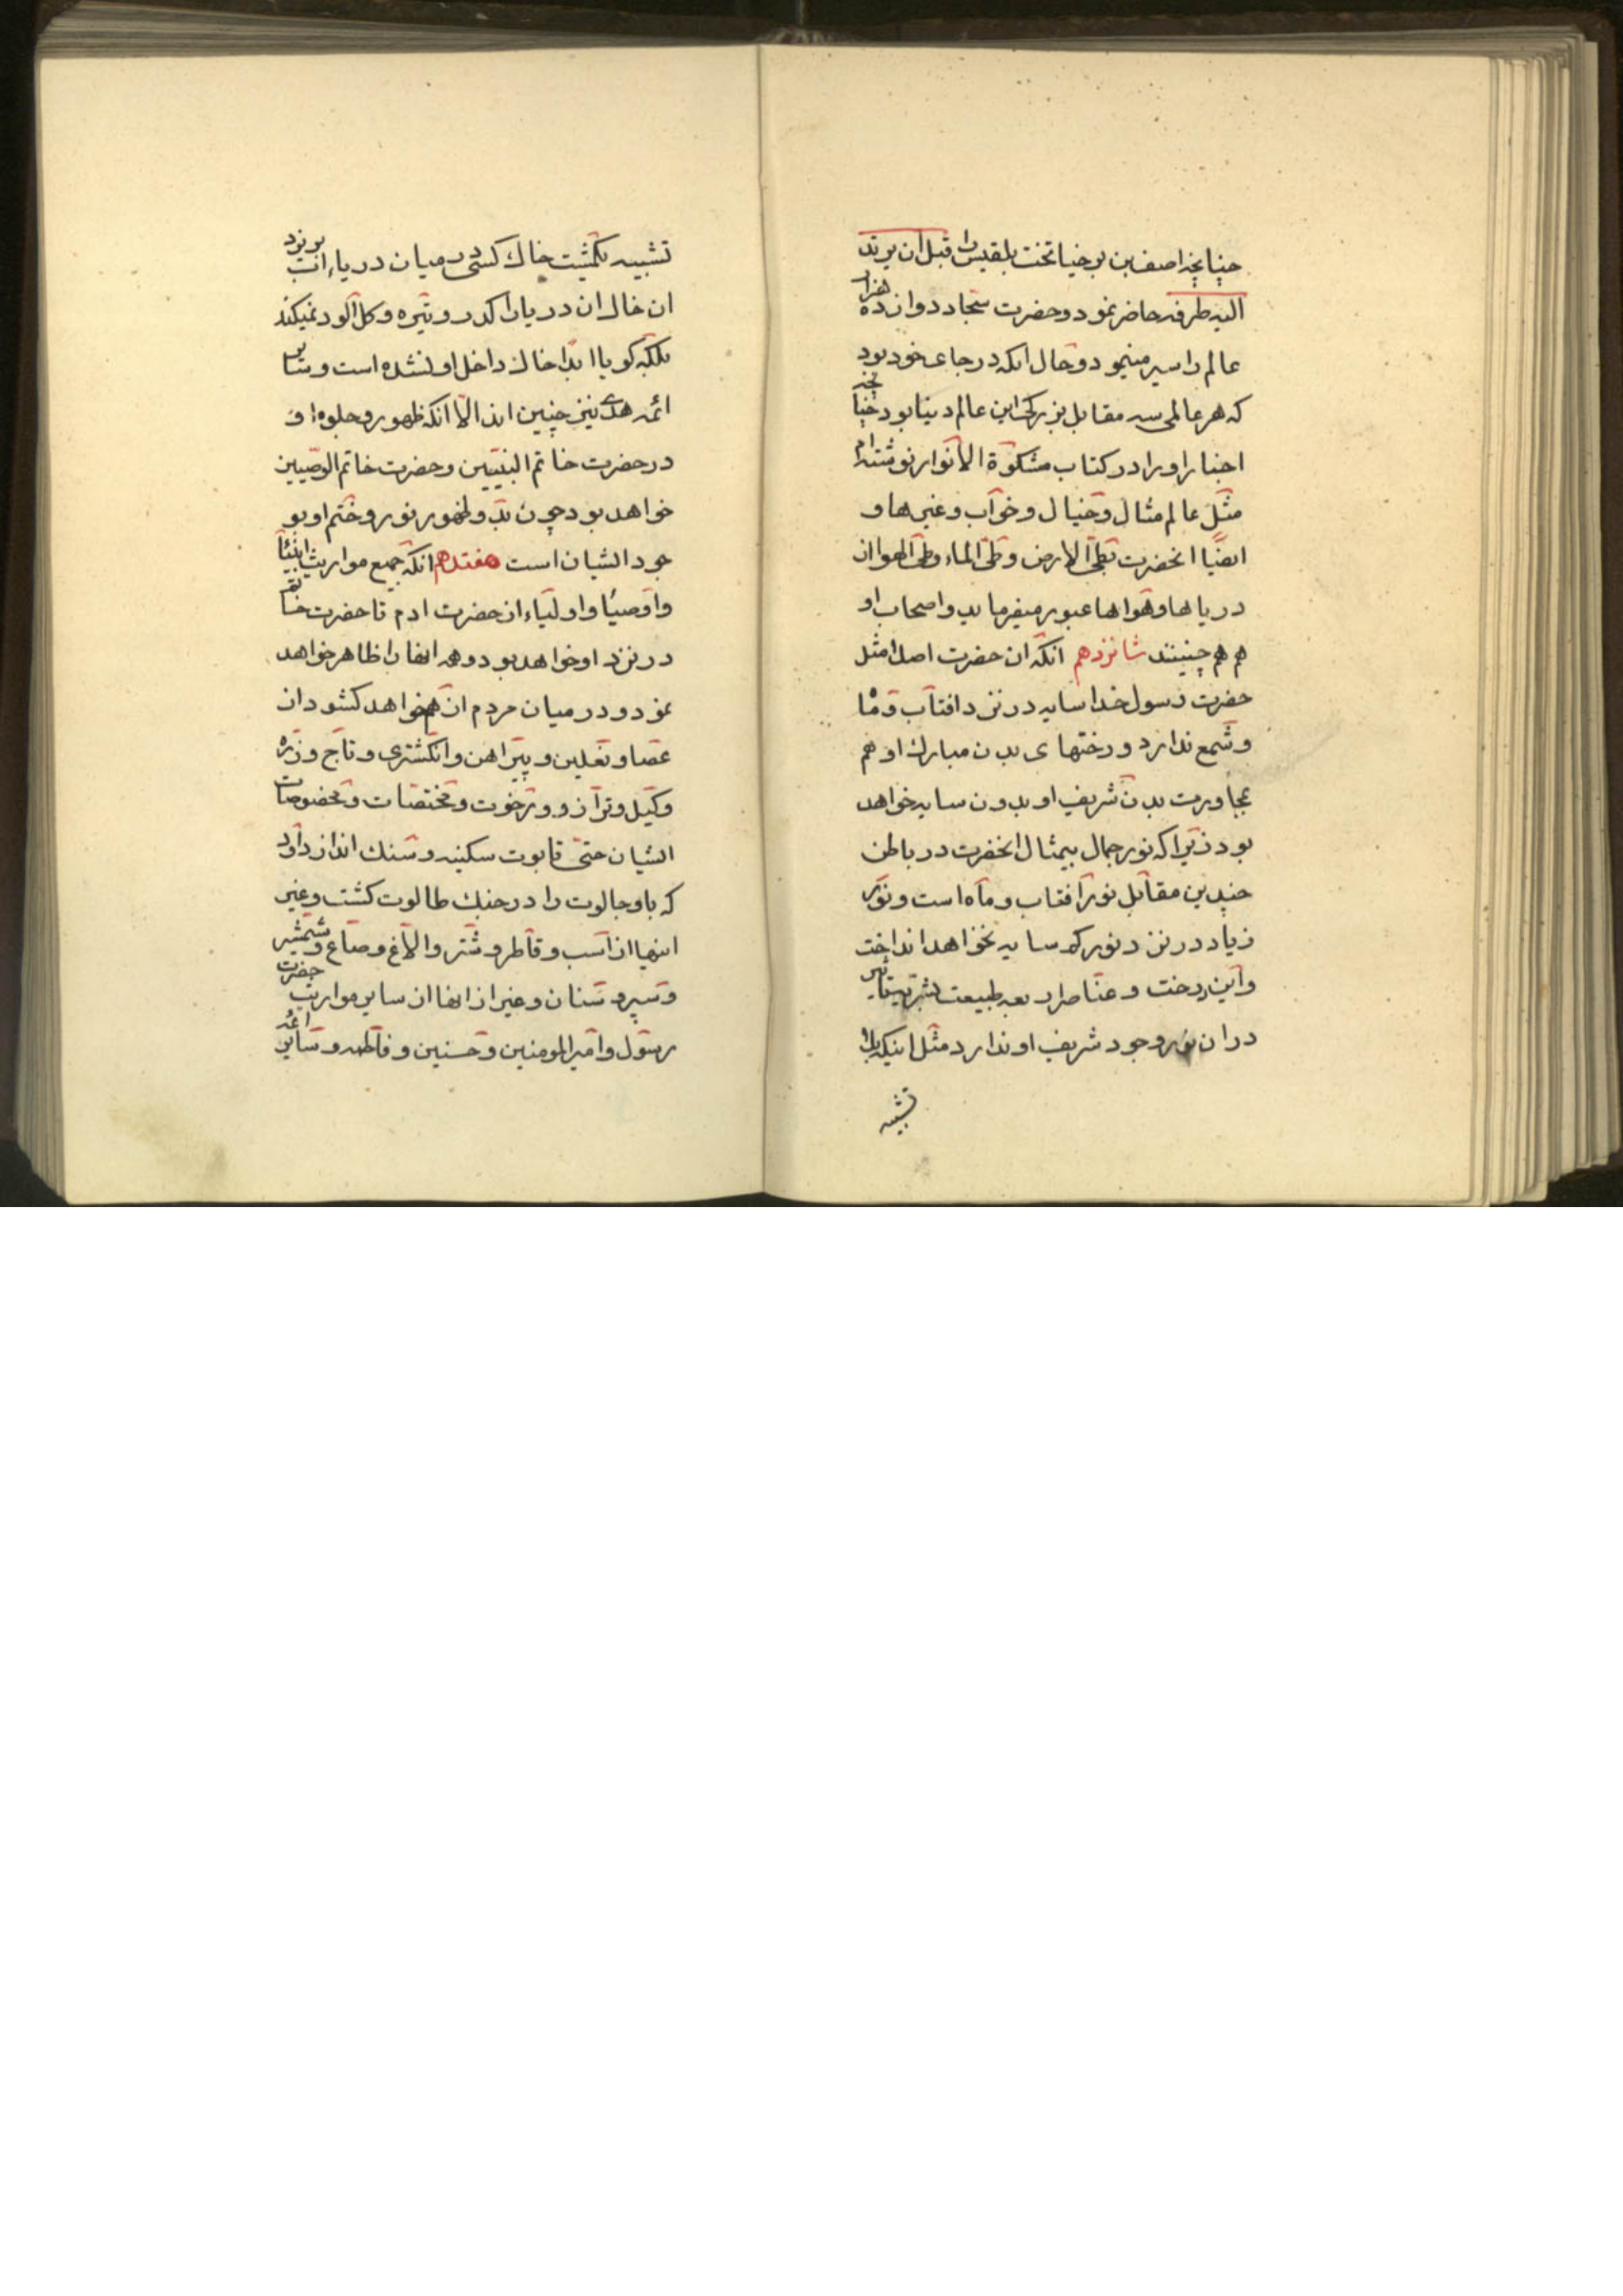 چنانچه اصف بن برخیا تخت بلقیس را قبل ان یرتد
الیه طرفه حاضر نمود و حضرت سجاد دوازده هزار
عالم را سیر مینمود و حال انکه در جای خود بود
که هر عالمی سه مقابل بزرکی این عالم دنیا بود چنانچه
اخبار او را در کتاب مشکوة الانوار نوشته‌ام
مثل عالم مثال و خیال و خواب و غیرها و
ایضا انحضرت بطی الارض و طی الماء و طی الهوا از
دریاها و هواها عبور میفرماید و اصحاب او
هم هم چنینند شانزدهم انکه ان حضرت اصلا مثل
حضرت رسول خدا سایه در نزد افتاب و ماه
و شمع ندارد و رختهای بدن مبارک او هم
بمجاورت بدن شریف او بدون سایه خواهد
بود زیرا که نور جمال بیمثال انحضرت در باطن
چندین مقابل نور افتاب و ماه است و نور
زیاد در نزد نور کم سایه نخواهد انداخت
واین رخت و عناصر اربعه طبیعت بشریة تأثیر
در ان نور وجود شریف او ندارد مثل اینکه بلا
تشبیه
تشبیه یکمشت خاک کسی در میان دریاء اب بریزد
ان خاک ان دریا را کدر و تیره و کل الود نمیکند
بلکه کویا ابدا خاک داخل او نشده است و سایر
ائمه هدی نیز چنین اند الا انکه ظهور و جلوه او
در حضرت خاتم النبیین و حضرت خاتم الوصیین
خواهد بود چون بدو ظهور نور و ختم او بو
جود ایشان است هفتدهم انکه جمیع مواریث انبیا
و اوصیا و اولیاء از حضرت ادم تا حضرت خاتم
در نزد او خواهد بود و همه انها را ظاهر خواهد
نمود و در میان مردم انهم خواهد کشود از
عصا و نعلین و پیراهن و انکشتری و تاج و زره
و کیل و ترازو و رخوت و مختصات و مخصوصات
ایشان حتی تابوت سکینه و سنک انداز داود
که باو جالوت را در جنک طالوت کشت و غیر
اینها از اسب و قاطر و شتر و الاغ و صاع و شمشیر
و سپر و سنان و غیر از انها از سایر مواریث حضرت
رسول و امیر المومنین و حسنین و فاطمه و سایر ائمه